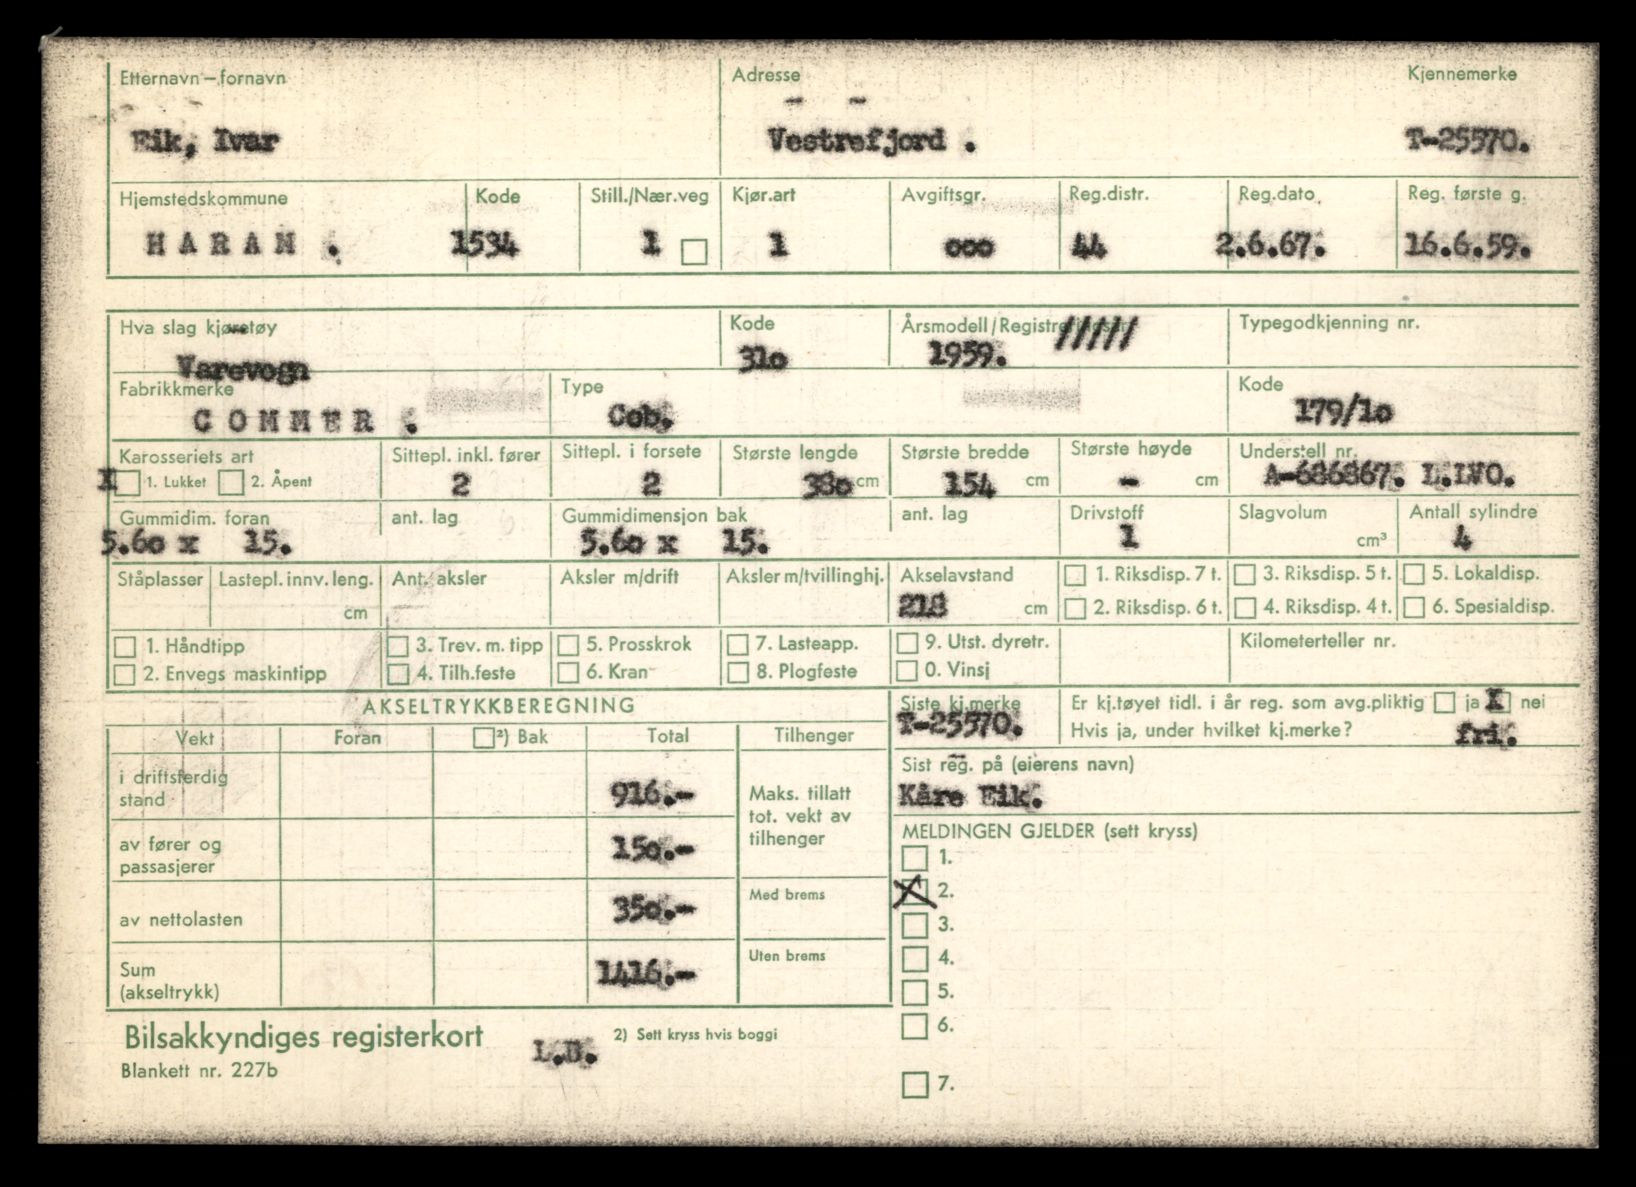 Etternavn – fornavn Adresse Kjennemerke
Eik, Ivar Vestrefjord . T-25570.
Hjemstedskommune Kode Still./Nær.veg Kjør.art Avgiftsgr. Reg.distr. Reg.dato. Reg. første g.
HARAM . 1534 1 1 ooo 44 2.6.67. 16.6.59.
Hva slag kjøretøy Kode Årsmodell/Registreringsår ///// Typegodkjenning nr.
Varevogn 31o 1959.
Fabrikkmerke Type Kode
COMMER . Cob. 179/1o
Karosseriets art Sittepl. inkl. fører Sittepl. i forsete Største lengde Største bredde Største høyde Understell nr.
X 1. Lukket 2. Åpent 2 2 38o cm 154 cm - cm A-686867. L.LVO.
Gummidim. foran ant. lag Gummidimensjon bak ant. lag Drivstoff Slagvolum Antall sylindre
5.6o x 15. 5.6o x 15. 1 cm³ 4
Ståplasser Lastepl. innv. leng. Ant. aksler Aksler m/drift Aksler m/tvillinghj. Akselavstand 1. Riksdisp. 7 t. 3. Riksdisp. 5 t. 5. Lokaldisp.
cm 218 cm 2. Riksdisp. 6 t. 4. Riksdisp. 4 t. 6. Spesialdisp.
1. Håndtipp 3. Trev. m. tipp 5. Prosskrok 7. Lasteapp. 9. Utst. dyretr. Kilometerteller nr.
2. Envegs maskintipp 4. Tilh.feste 6. Kran 8. Plogfeste 0. Vinsj
AKSELTRYKKBEREGNING Siste kj.merke Er kj.tøyet tidl. i år reg. som avg.pliktig ja X nei
T-25570. Hvis ja, under hvilket kj.merke? fri.
Vekt Foran ²) Bak Total Tilhenger
Sist reg. på (eierens navn)
i driftsferdig stand 916.- Maks. tillatt tot. vekt av tilhenger
Kåre Eik.
MELDINGEN GJELDER (sett kryss)
av fører og passasjerer 150.-
1.
Med brems X 2.
av nettolasten 350.- 3.
Uten brems 4.
Sum (akseltrykk) 1416.- 5.
Bilsakkyndiges registerkort 2) Sett kryss hvis boggi 6.
Blankett nr. 227b 7.